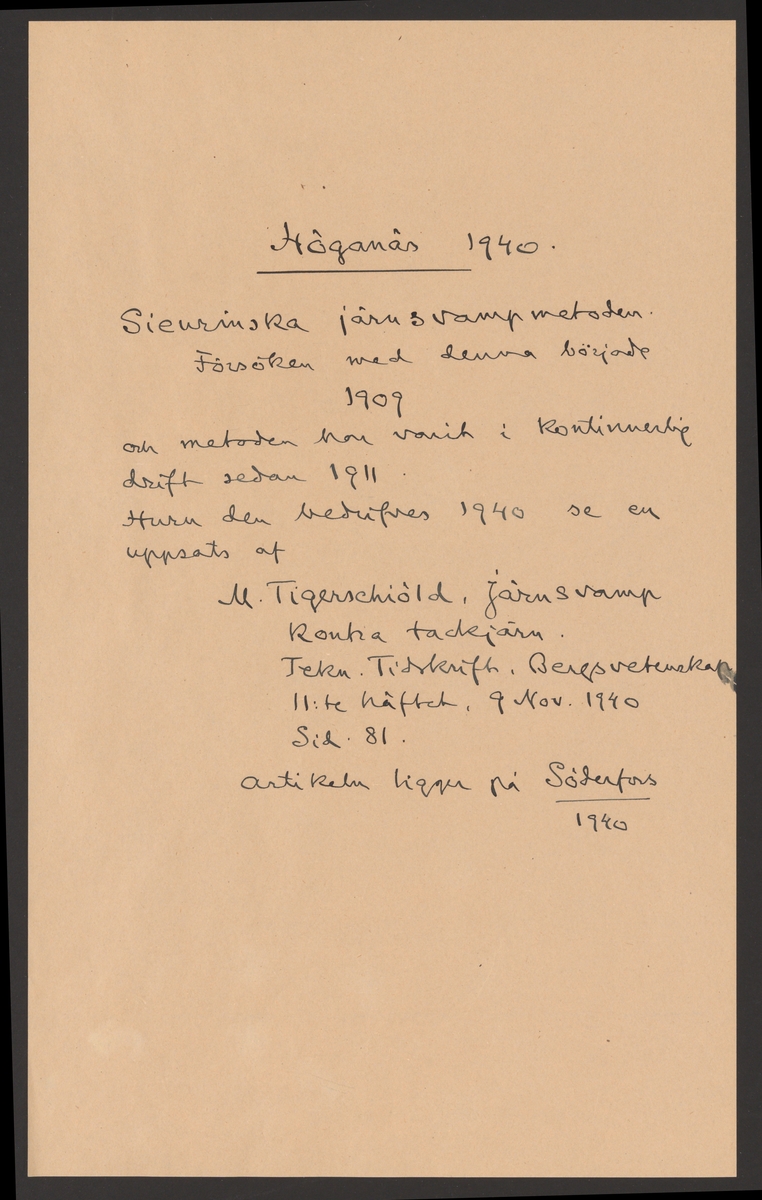 Höganäs 1940.
Sieurinska järnsvampmetoden.
Försöken med denna började
1909
och metoden har varit i kontinuerlig
drift sedan 1911.
Huru den bedrifves 1940 se en
uppsats af
M. Tigerschiöld, Järnsvamp
kontra tackjärn.
Tekn. Tidskrift. Bergsvetenskap
11:te häftet, 9 Nov. 1940
Sid. 81.
Artikeln ligger på Söderfors
1940